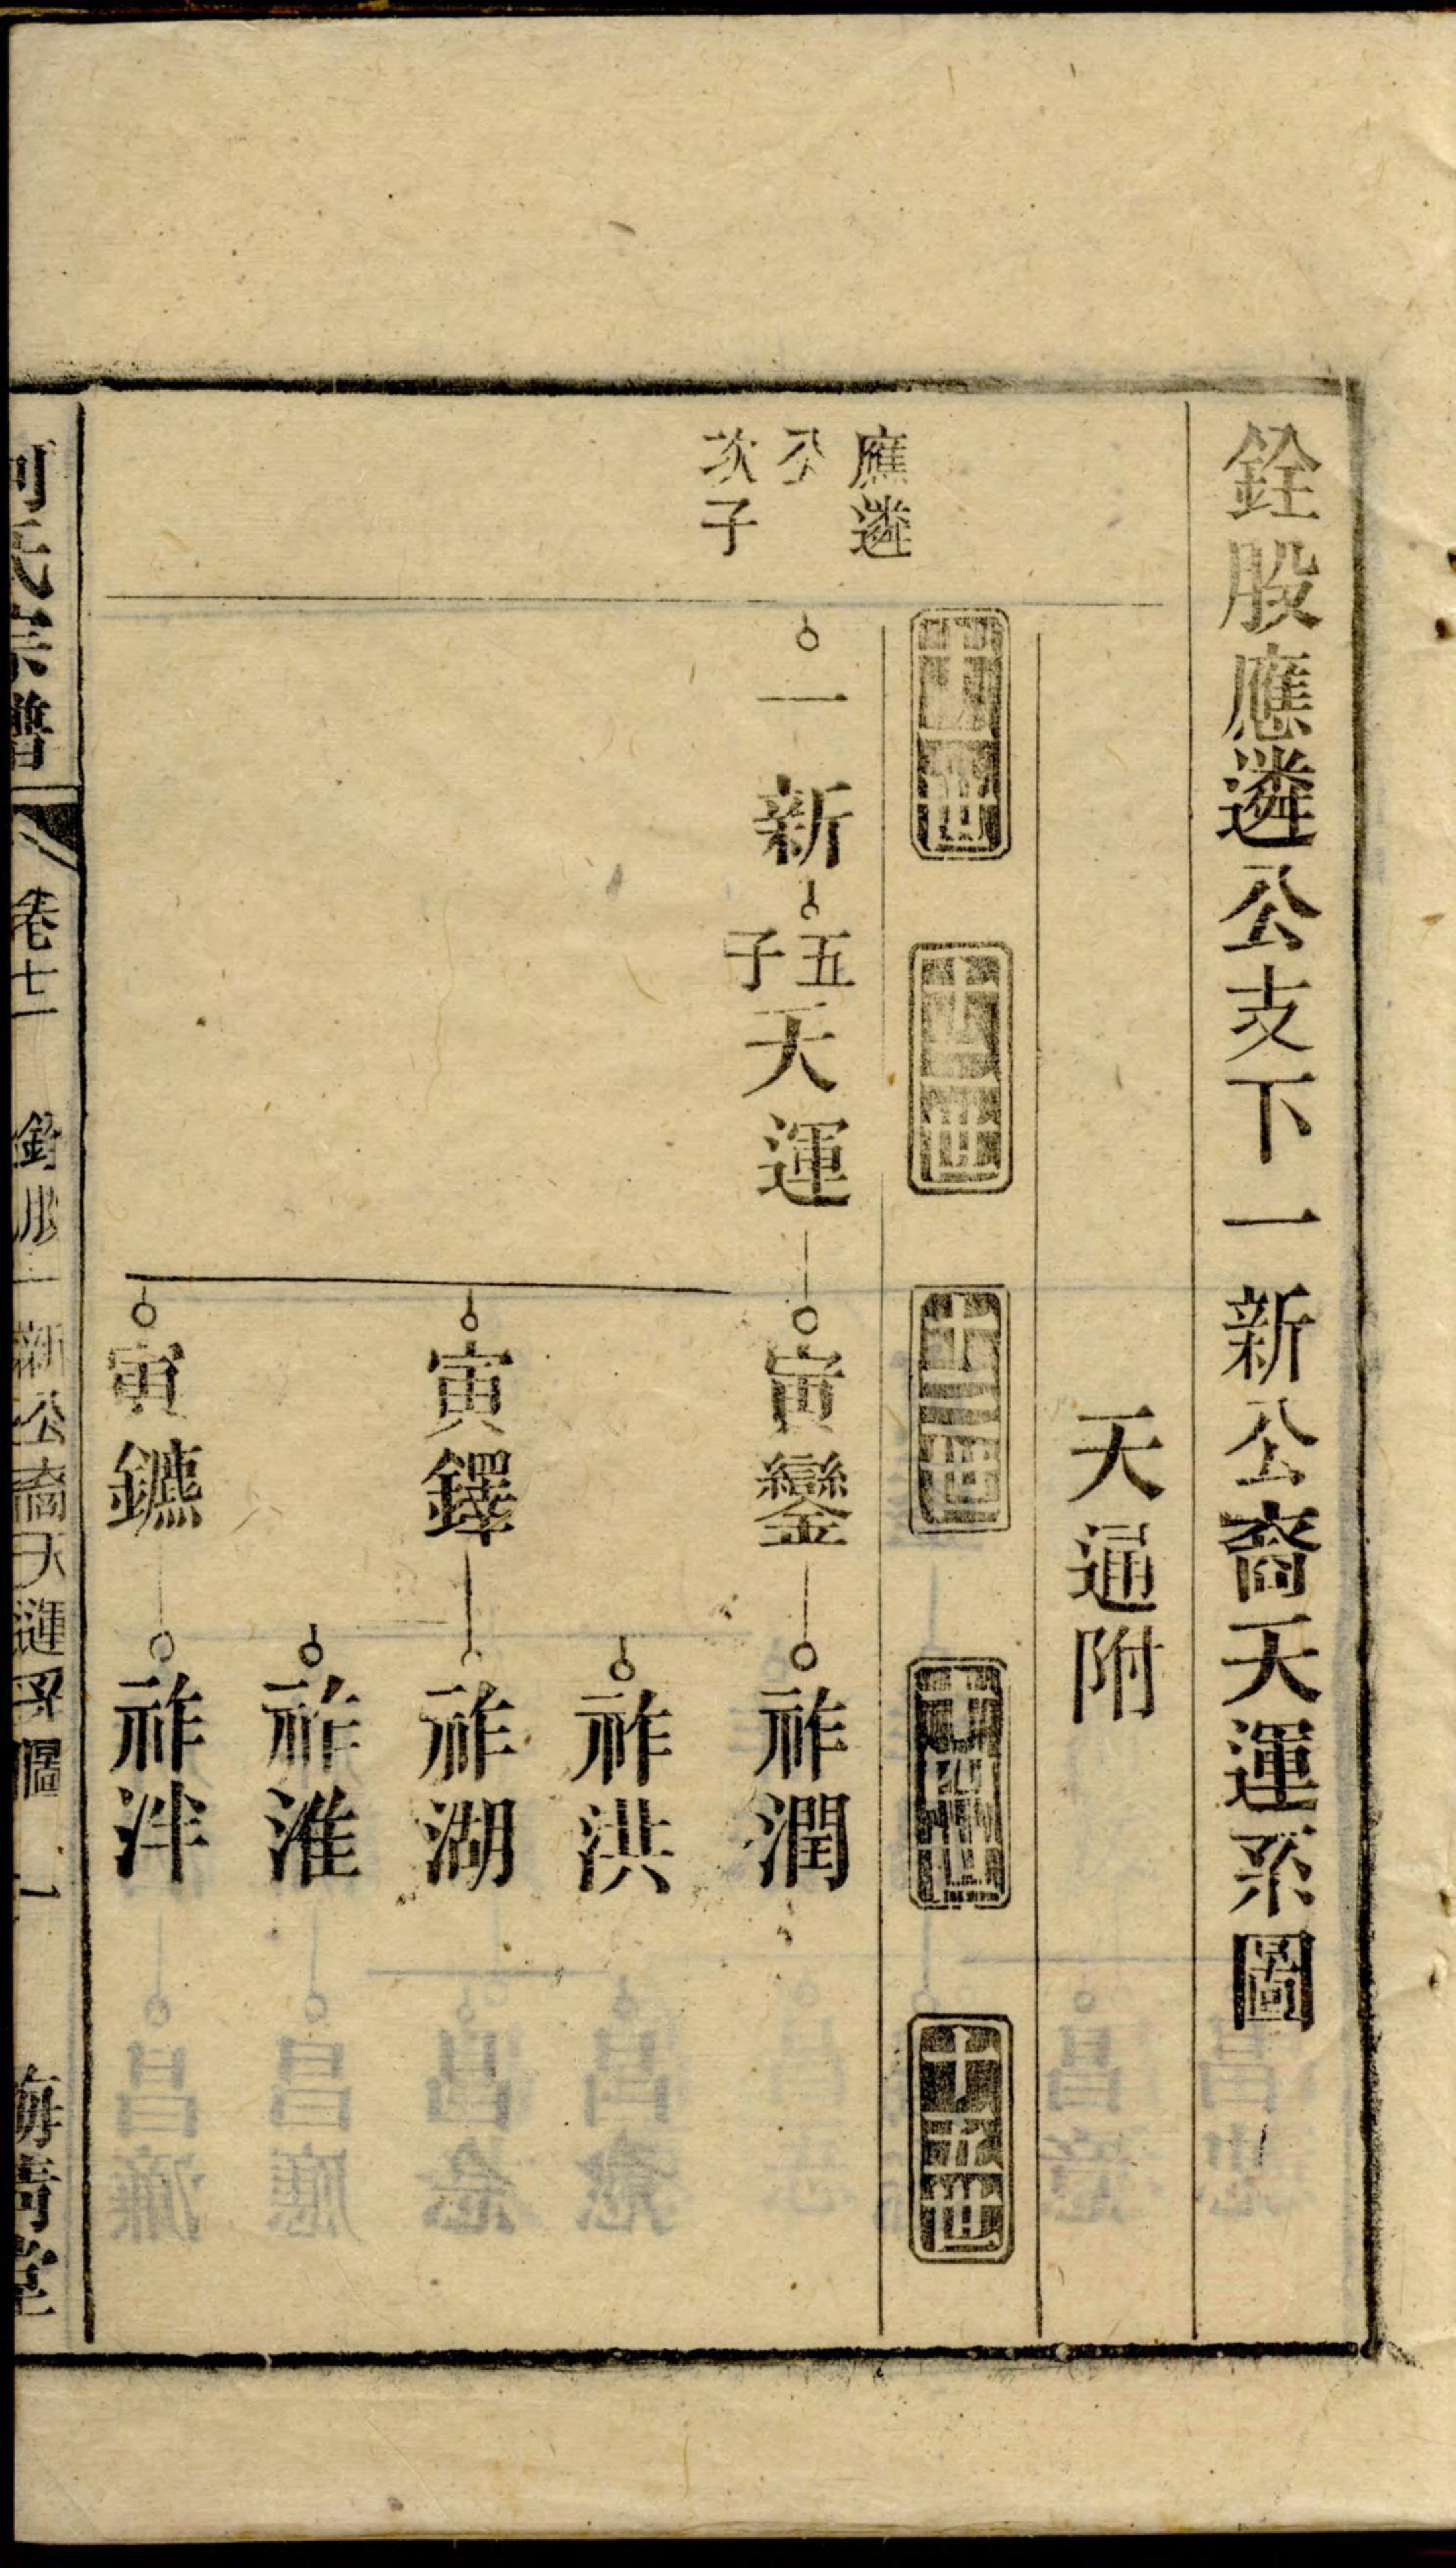 銓股應遴公支下一新公裔天運系圖
天通附
十一世
十二世
十三世
十四世
十五世
應遴
公
次子
一新
五子
天運
寅鑾
祚潤
祚洪
寅鐸
祚湖
祚淮
寅鑣
祚泮
氏宗譜
卷七
銓股一新公裔天運系圖
一
堂